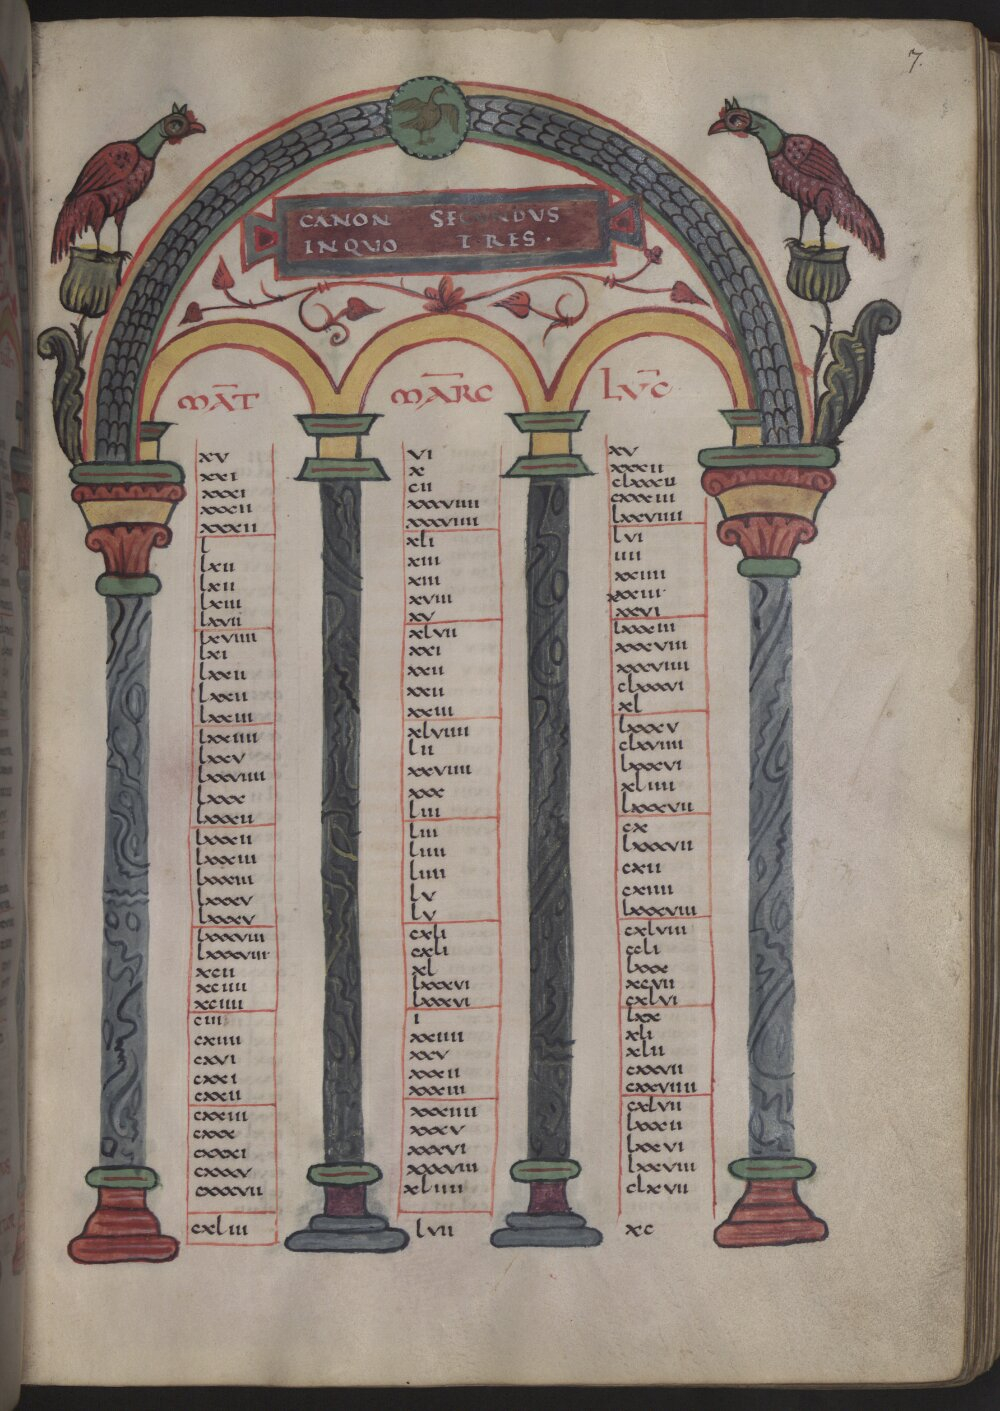 7.
CANON SECUNDUS
INQUO TRES·
MAT̄ MĀRC LUC̄
xv vi xv
xxi x xxxii
xxxi cii clxxxii
xxxii xxxviiii cxxxiii
xxxii xxxviiii lxxviiii
l xli lvi
lxii xiii iiii
lxii xiii xxiiii
lxiii xviii xxxiii
lxvii xv xxvi
lxviiii xlvii lxxxiii
lxi xxi xxxviii
lxxii xxii xxxviiii
lxxii xxii clxxxvi
lxxiii xxiii xl
lxxiiii xlviiii lxxxv
lxxv lii clxviiii
lxxviiii xxviiii lxxxvi
lxxx xxx xliiii
lxxxii liii lxxxvii
lxxxii liii cx
lxxxiii liiii lxxxvii
lxxxiii liiii cxii
lxxxv lv cxiiii
lxxxv lv lxxxviii
lxxxviii cxli cxlviii
lxxxviii cxli ccli
xcii xl lxxx
xciiii lxxxvi xcvii
xciiii lxxxvi cxlvi
ciii i lxx
cxiiii xxiiii xli
cxvi xxv xlii
cxxi xxxii cxxvii
cxxii xxxiii cxxviiii
cxxiii xxxiiii cxlvii
cxxx xxxv lxxxii
cxxxi xxxvi lxxvi
cxxxv xxxviii lxxviii
cxxxvii xliiii clxvii
cxliii lvii xc